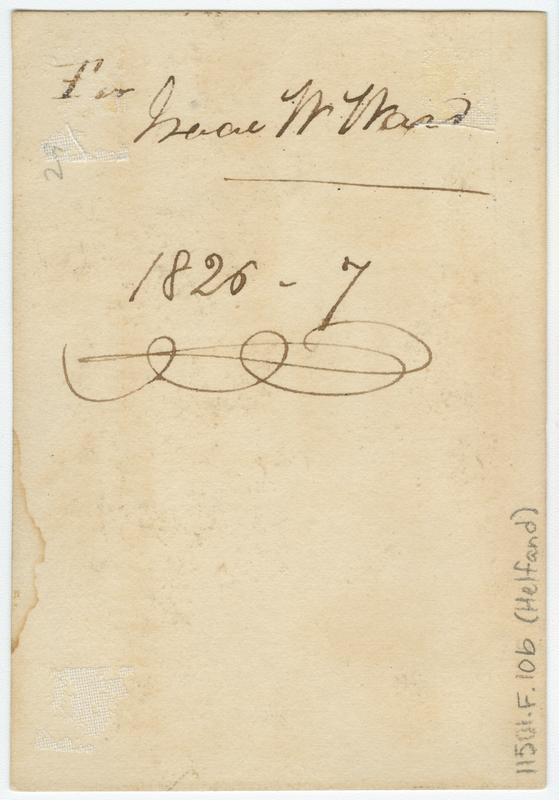 For
Isaac W Ward
1826 - 7
11501.F.10b (Helfand)